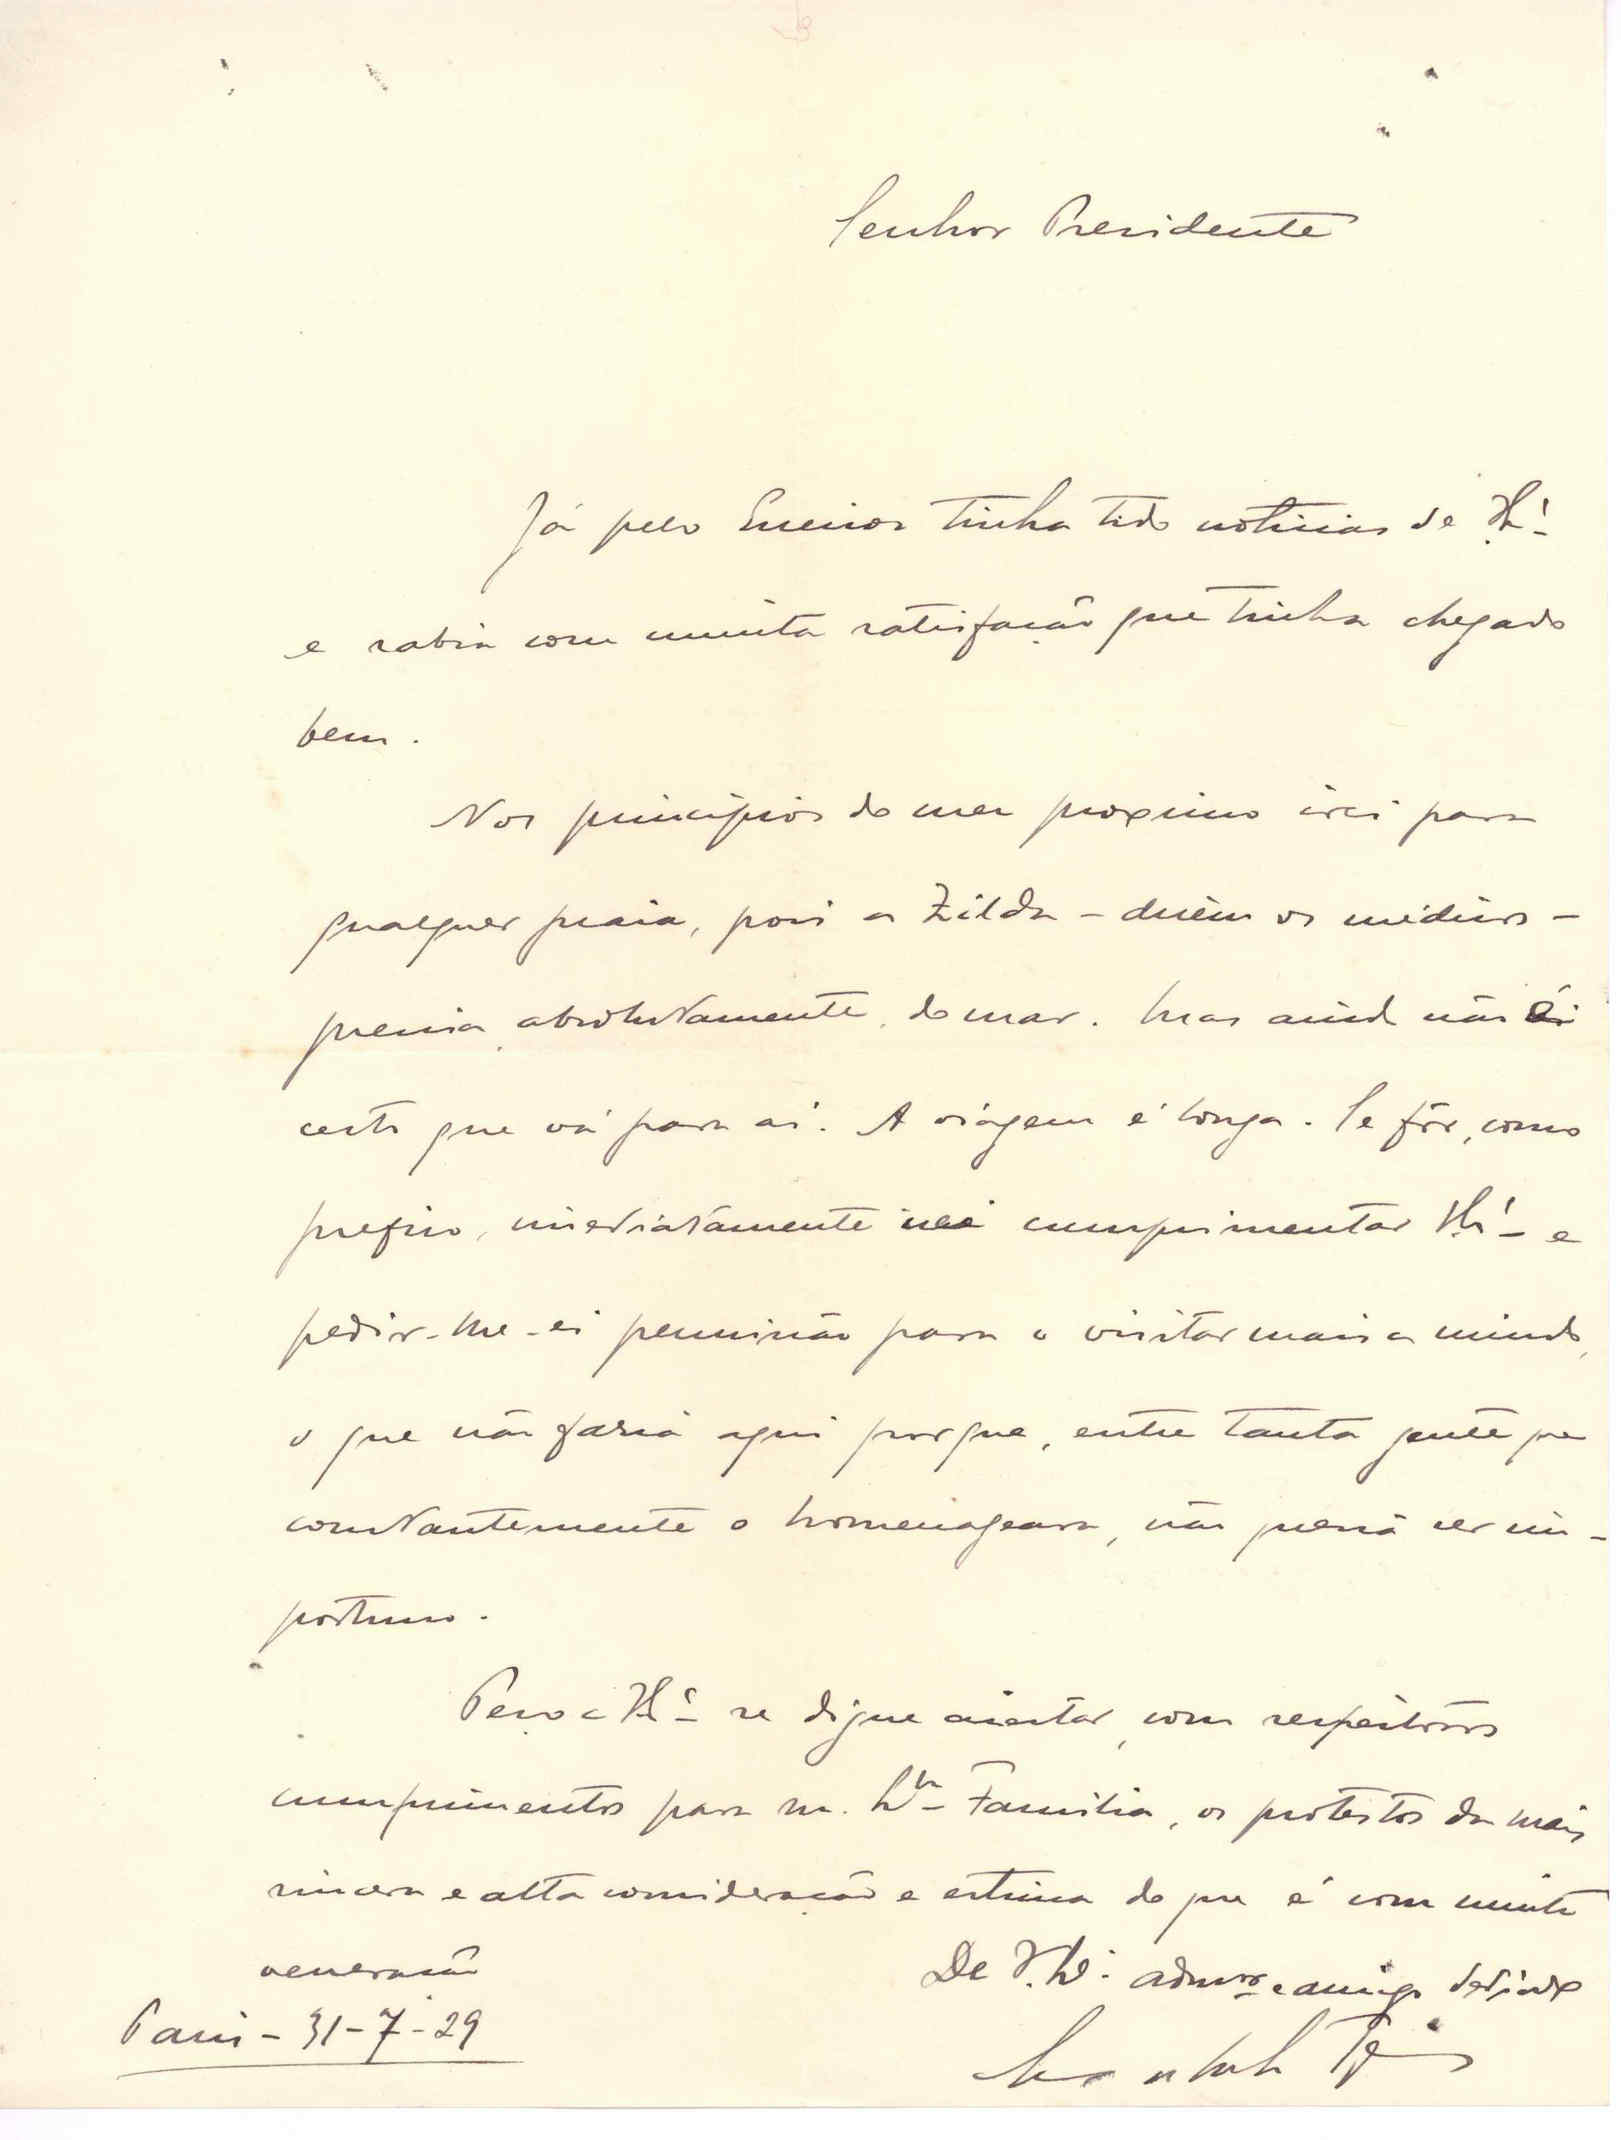 Senhor Presidente
Já pelo tinha tido noticias de V. Ex.ª
e sabia com muita satisfação que tinha chegado
bem.
Nos principios do mez proximo irei para
qualquer praia, pois a Zilda - dizem os médicos -
precisa absolutamente do mar. Mas aind não é
certo que vá para aí. A viágem é longa. Se fôr, como
prefiro, imediatamente irei cumprimentar V. Ex.ª e
pedir-lhe-ei permissão para o visitar mais a miudo,
o que não faria aqui porque, entre tanta gente que
constantemente o homenageava, não queria ser im-
portuno.
Peço a V. Ex.ª se digne aceitar, com respeitosos
cumprimentos para Família, os protestos da mais
sincera e alta consideração e estima do que é com muita
veneração
De V. Ex.ª admor e amigo dedicado
Paris - 31-7-29